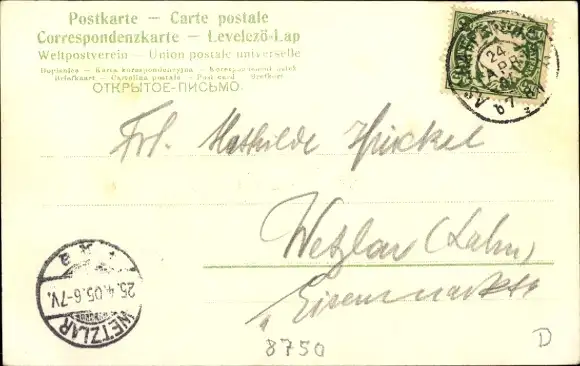 Postkarte – Carte postale
Correspondenzkarte – Levelező-Lap
Weltpostverein – Union postale universelle
Dopisnice – Karta korespondencyjna – Korespondenční lístek
Briefkaart – Cartolina postale – Post card – Brefkort
ОТКРЫТОЕ-ПИСЬМО.
24
APR
Frl. Mathilde
Wetzlar (Lahn)
Eisenmarkt
25.4.05.6-7V.
WETZLAR
8750
D